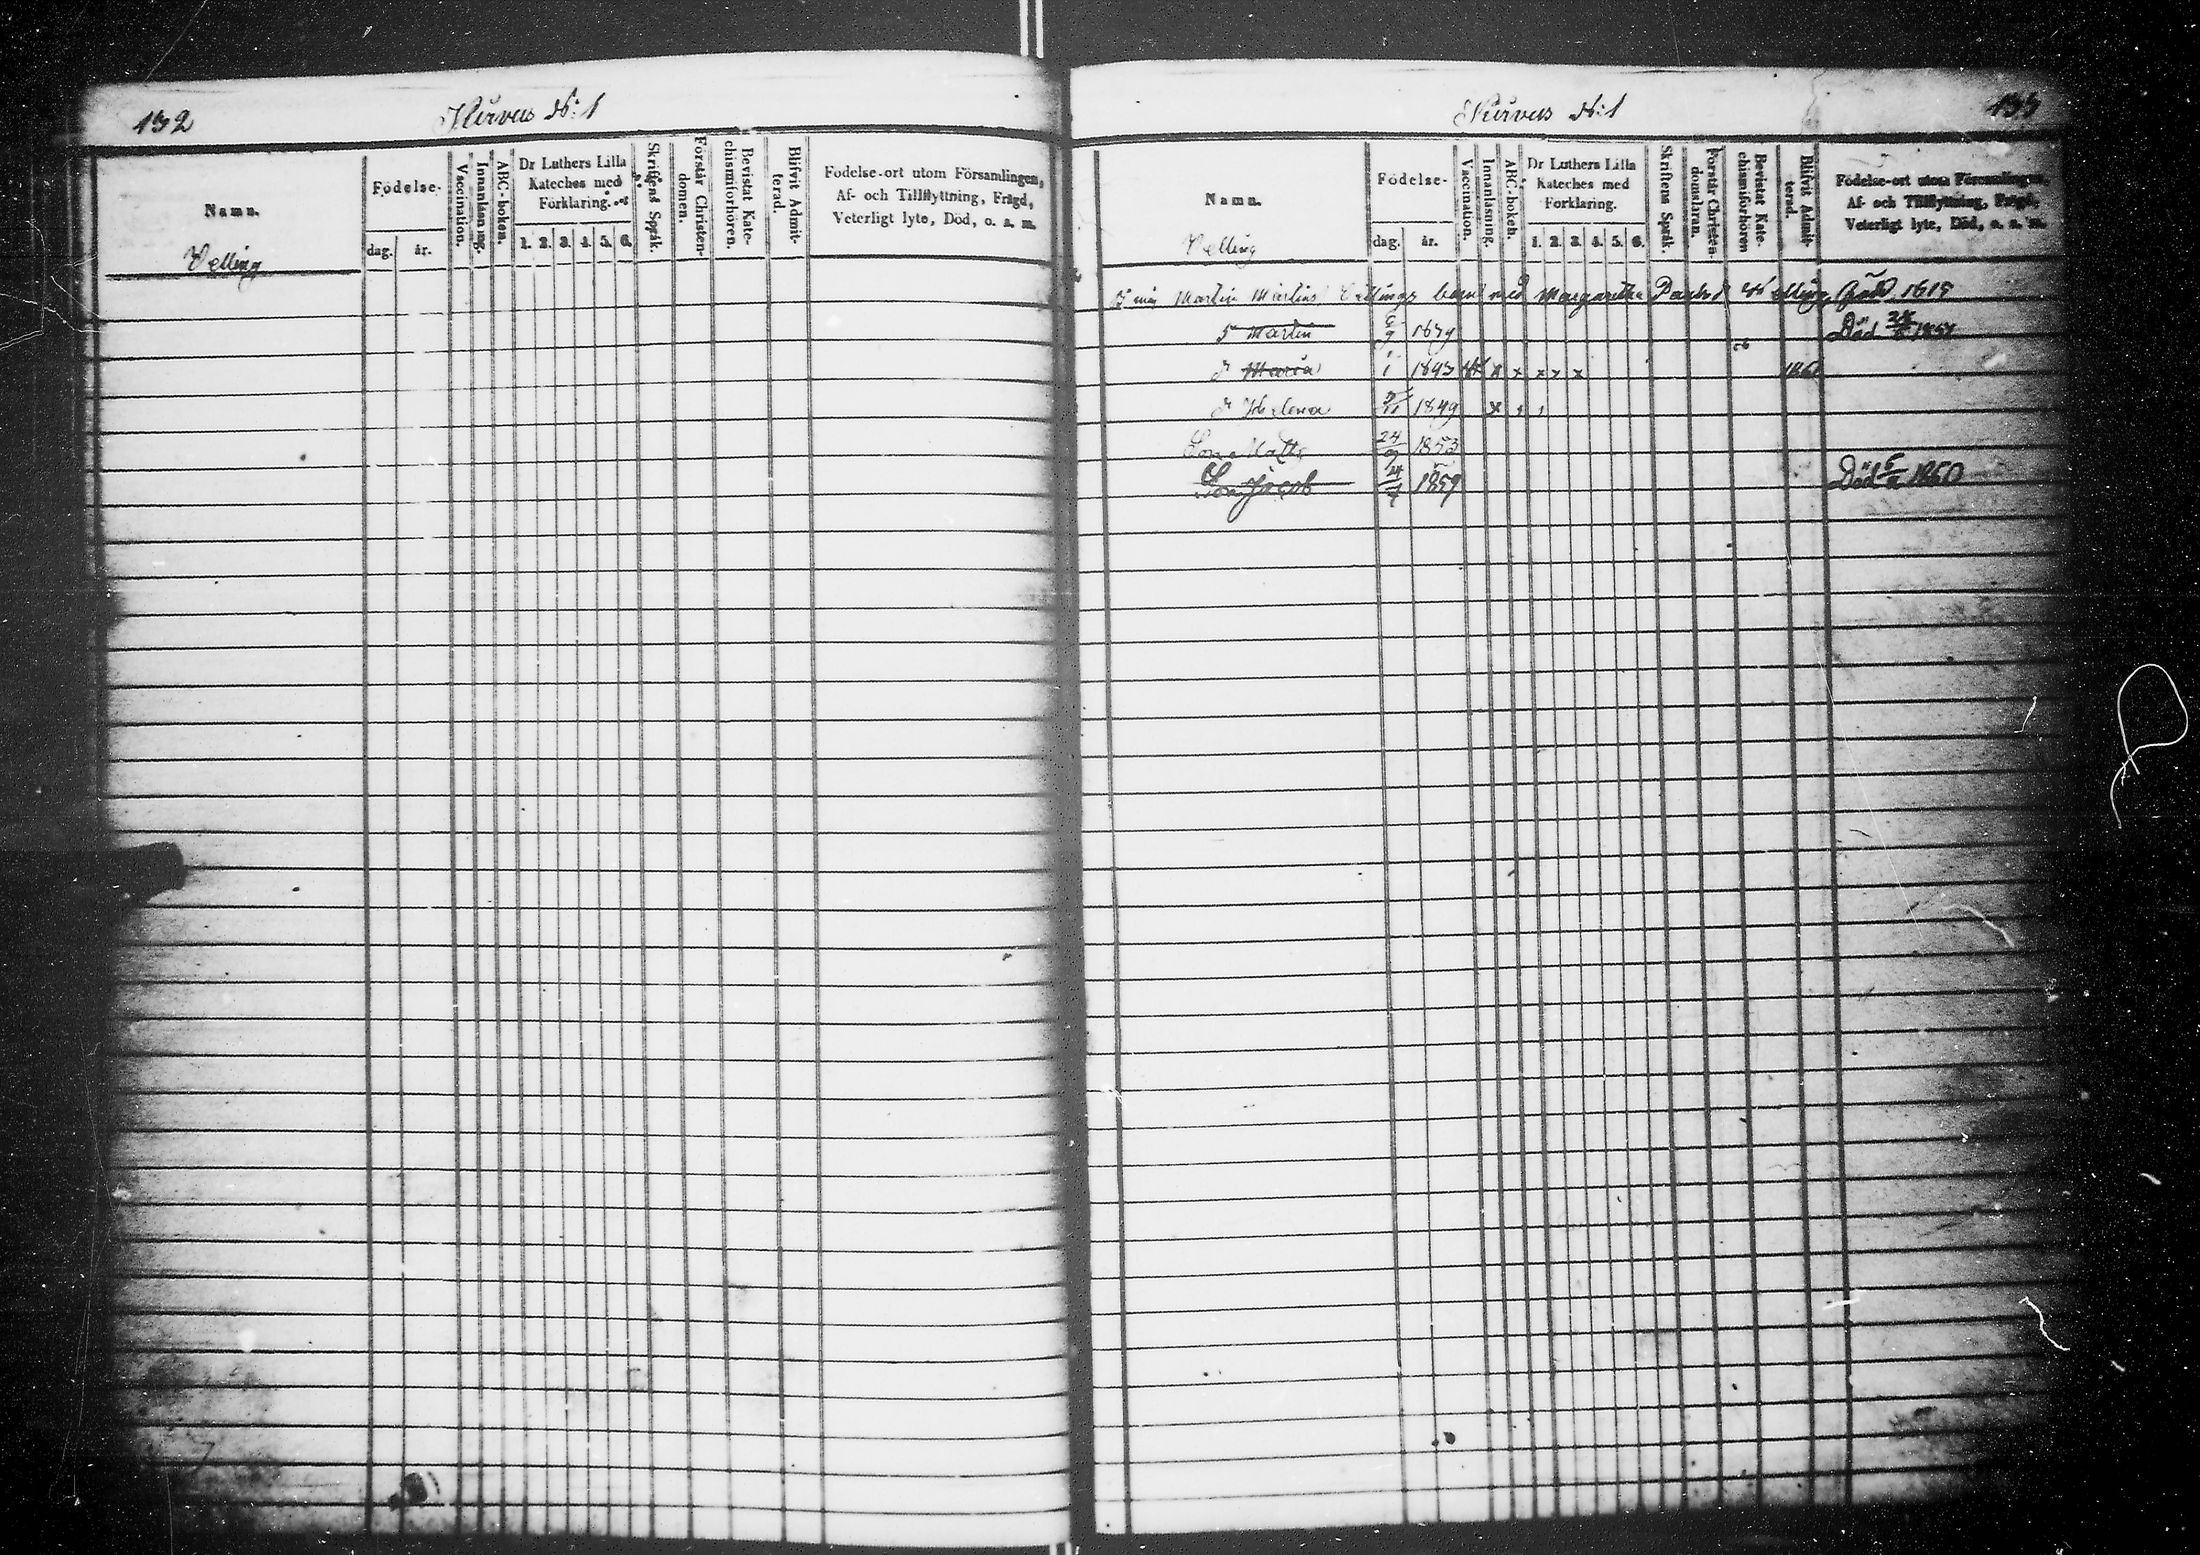 132
Kurvus N:1
Namn.
Födelse-
dag. år.
Vaccination.
Innanläsning.
ABC-boken.
Dr Luthers Lilla
Kateches med
Förklaring.
1. 2. 3. 4. 5. 6.
Skriftens Språk.
Förstår Christen-
domen.
Bevistat Kate-
chismiförhören.
Blifvit Admit-
terad.
Födelse-ort utom Församlingen,
Af- och Tillflyttning, Frägd,
Veterligt lyte, Död, o. s. m.
Velling
Kurvus N:1
133
Namn.
Födelse-
dag. år.
Vaccination.
Innanläsning.
ABC-boken.
Dr Luthers Lilla
Kateches med
Förklaring.
1. 2. 3. 4. 5. 6.
Skriftens Språk.
Förstår Christen-
domsläran.
Bevistat Kate-
chismiförhören
Blifvit Admit-
terad.
Födelse-ort utom Församlingen,
Af- och Tillflyttning, Frägd,
Veterligt lyte, Död, o. s. m.
Velling
Martin Martins Vellings barn med Margaretha
S Martin Död
d Maria 1 1843 x x x x x
d Helena 1849 x
Son Matts 24/9 1853
Son Jacob 1859 Död 1860